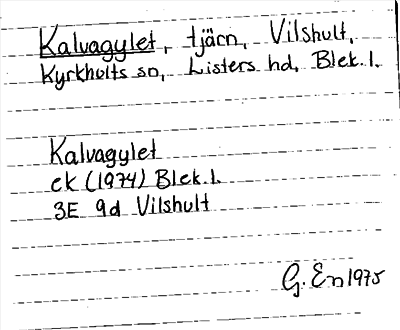 Kalvagylet, tjärn, Vilshult,
Kyrkhults sn, Listers hd, Blek. l.
Kalvagylet
ek (1974) Blek. l.
3E 9d Vilshult
G. En 1975